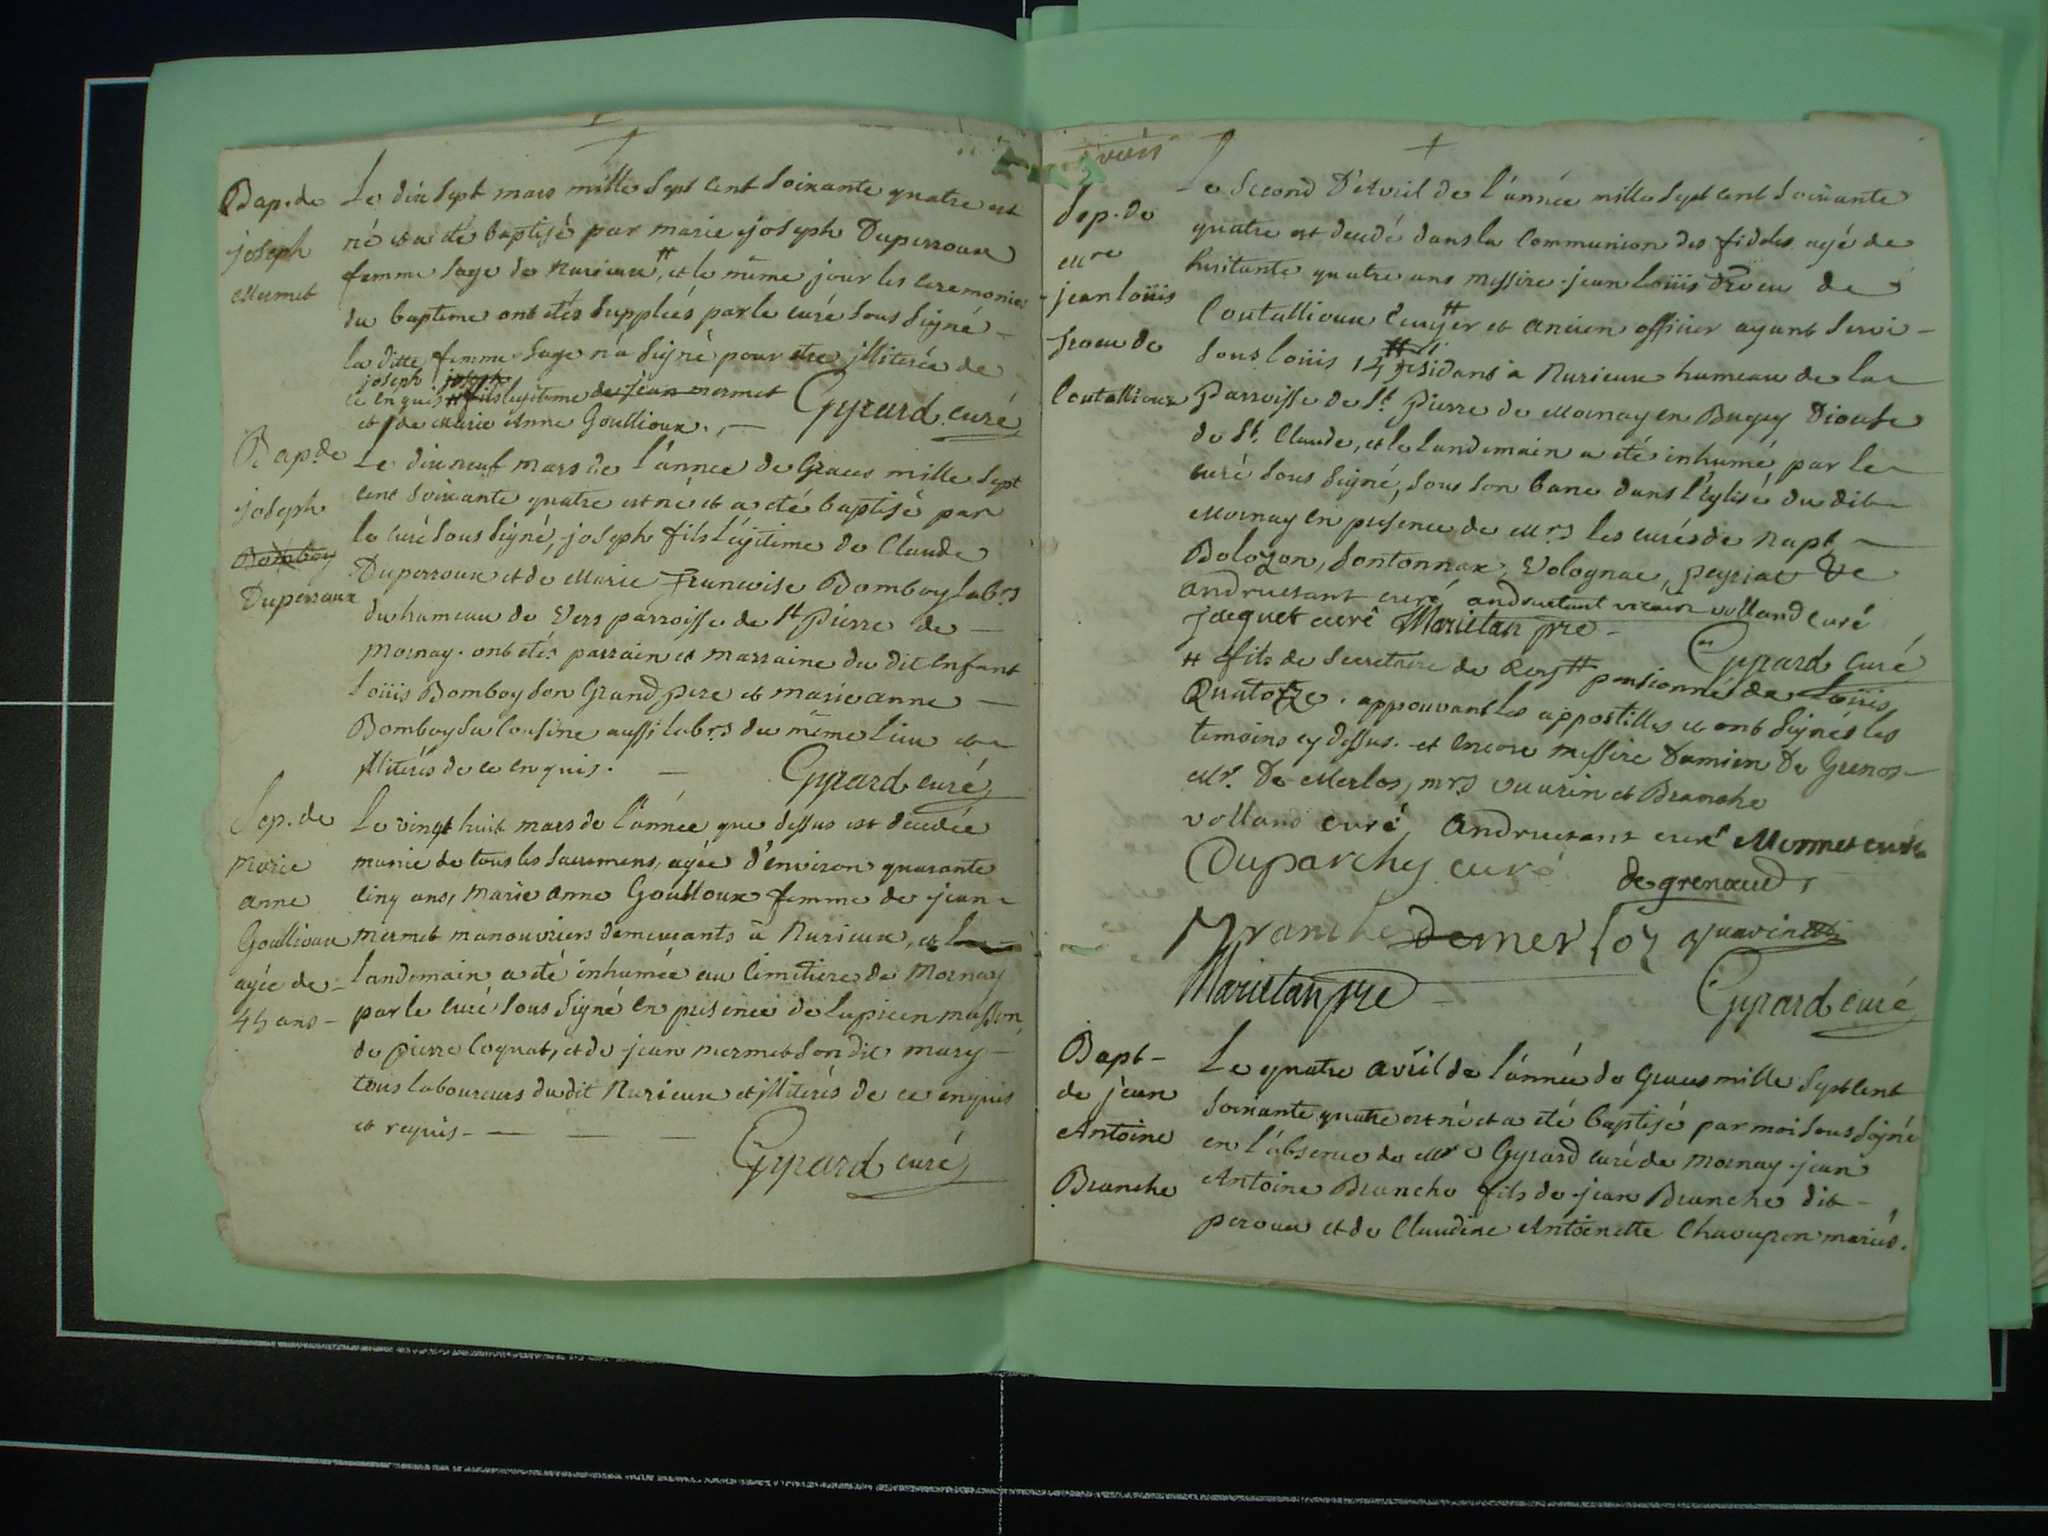 Bap. de
joseph
Mermet
Le dix sept mars mille sept cent soixante quatre est
né et a été baptisé par marie joseph Duperroux
femme sage de Nurieux, # et le même jour les ceremonies
du baptême ont étés suppléés par le curé sous signé -
la ditte femme sage n'a signé pour etre illiterée de
joseph
ce enquis # fils legitime de jean mermet Gyrard curé
et de Marie Anne Goullioux. -
Bap. de
joseph
Bomboy
Duperroux
Le dix neuf mars de l'année de Graces mille sept
cent soixante quatre est né et a été baptisé par
le curé sous signé, joseph fils légitime de Claude
Duperroux et de Marie Francoise Bomboy lab.rs
du hameau de Vers parroisse de St Pierre de -
Mornay. ont étés parrain et marraine du dit enfant
Loüis Bomboy son Grand pere et marie anne -
Bomboy sa cousine aussi lab.rs du même lieu et
illiterés de ce enquis. - Gyrard curé
Sep. de
Marie
anne
Goullioux
agée de -
45 ans -
Le vingt huit mars de l'année que dessus est decedée
munie de tous les sacremens, agée d'environ quarante
cinq ans, Marie Anne Goullioux femme de jean -
mermet manouvriers demeurants à Nurieux, et le
landemain a été inhumée au cimetiere de Mornay
par le curé sous signé en presence de Lupicin masson,
de pierre Coquat, et de jean mermet son dit mary -
tous laboureurs du dit Nurieux et illiterés de ce enquis
et requis - - - -
Gyrard curé
trois
Sep. de
Mre
jean loüis
Droeu de
Coutallioux
Le second D'Avril de l'année mille sept cent soixante
quatre est decedé dans la Communion des fideles agé de
huitante quatre ans messire jean Loüis Droeu de
Coutallioux Ecuyer # et ancien officier ayant servi -
sous loüis 14 # residant a Nurieux hameau de la
Parroisse de St. Pierre de Mornay en Bugey Diocese
de St. Claude, et le landemain a été inhumé, par le
curé sous signé, sous son banc dans l'église du dit
Mornay en presence de Mrs les curés de Napt -
Bolozon, Sontonnax, Volognac, Peyriat &c
andruetant curé andruetant vicaire volland curé
jacquet curé Marietan pre - Gyrard Curé
# fils de secretaire de Roy # pensionné de Loüis
Quatorze. appouvant les appostilles et ont signés les
temoins cy dessus. et encore messire Damien De Grenos
Mr. De Merlos, mrs vuarin et Branche
volland curé, andruetant curé Mermet curé
Duparchy curé degrenaud,
Branche demerloz vuarin
Marietan pre - Gyrard curé
Bapt -
de jean
Antoine
Branche
Le quatre avril de l'année de Graces mille sept cent
soixante quatre est né et a été baptisé par moi sous signé
en l'absence de Mr Gyrard curé de Mornay jean
Antoine Branche fils de jean Branche dit -
peroux et de Claudine Antoinette Chavepon mariés.